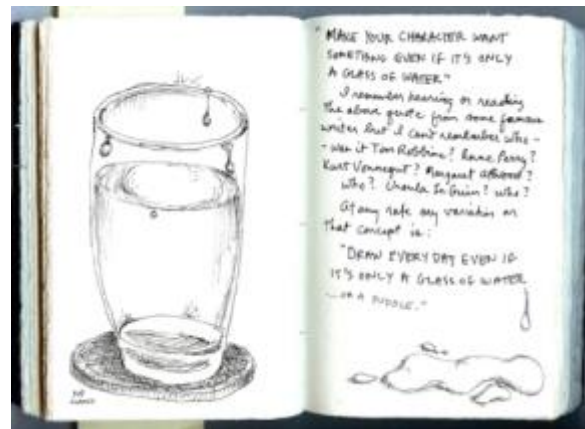 "MAKE YOUR CHARACTER WANT
SOMETHING EVEN IF IT'S ONLY
A GLASS OF WATER"
I remember hearing or reading
the above quote from some famous
writer but I can't remember who -
- was it Tom Robbins? Anne Perry?
Kurt Vonnegut? Margaret Atwood?
who? Ursula Le Guin? who?
At any rate my variation on
that concept is:
"DRAW EVERY DAY EVEN IF
IT'S ONLY A GLASS OF WATER
...OR A PUDDLE."